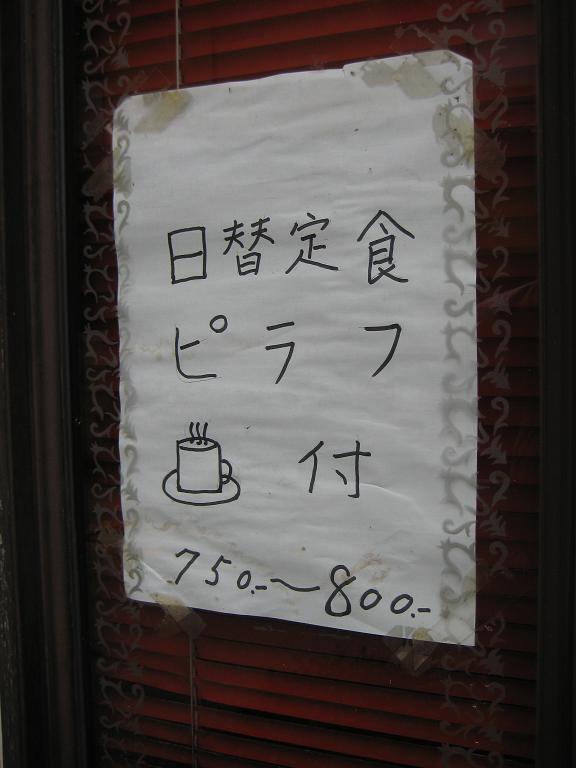 日替定食
ピラフ
付
750.-～800.-